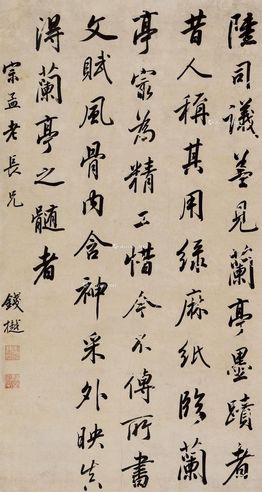 陸司議蓋見蘭亭墨蹟者
昔人稱其用綠麻紙臨蘭
亭冣為精工惜今不傳所書
文賦風骨內含神采外映真
得蘭亭之髓者
宗孟老長兄
錢樾